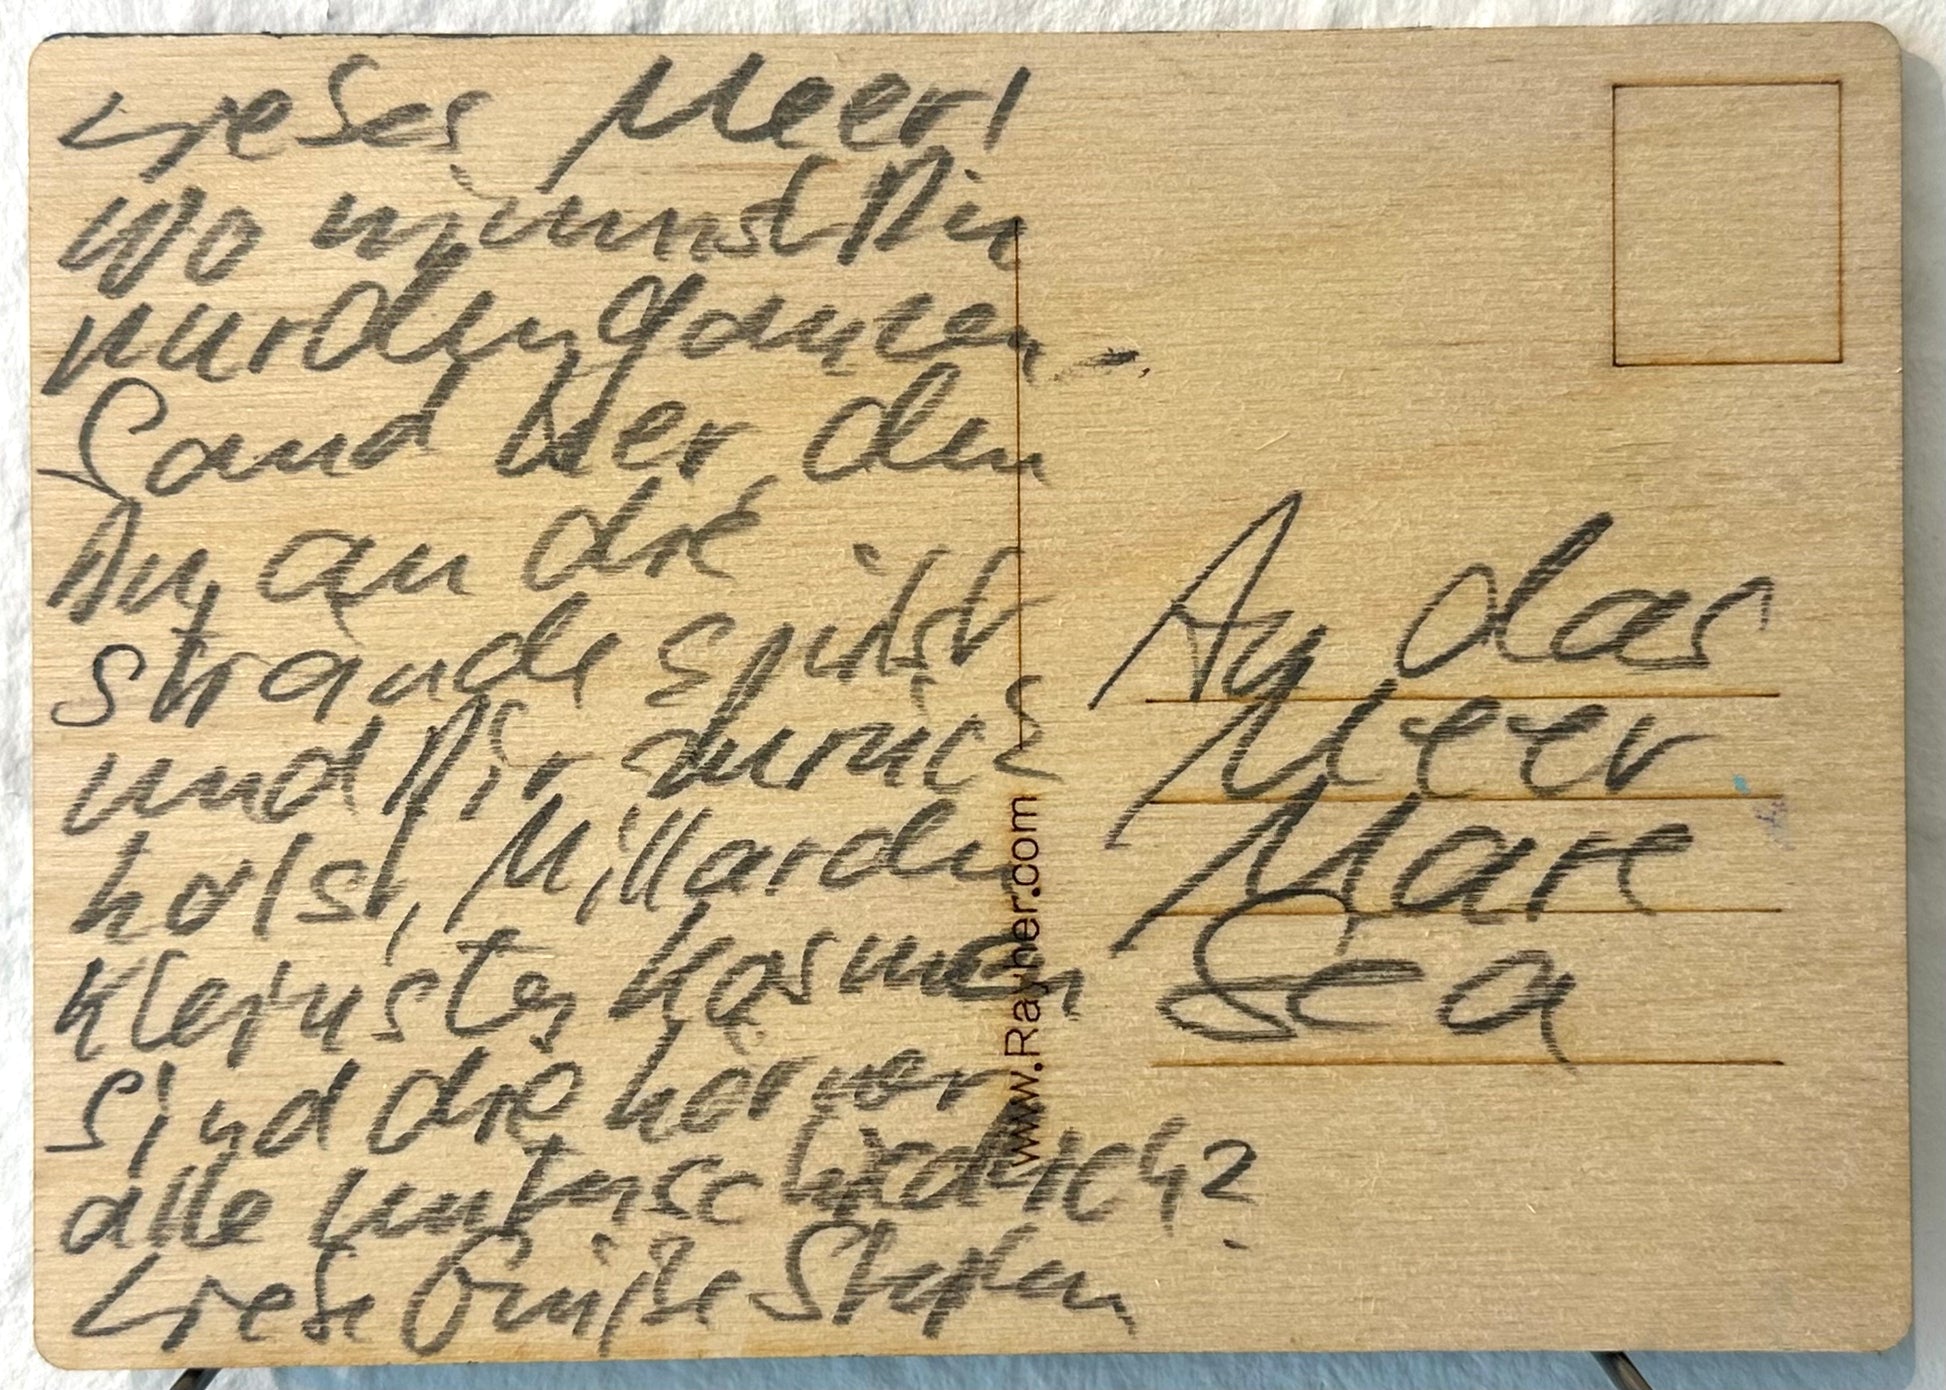 Liebes Meer!
Wo nimmst Du
nur den ganzen
Sand her den
Du, an die
Strände spülst
und Dir zurück
holst, Millarden
kleinster Kosmen
Sind die Körner
alle unterschiedlich?
Liebe Grüße Stephan
An das
Meer
Mare
Sea
www.Rayher.com